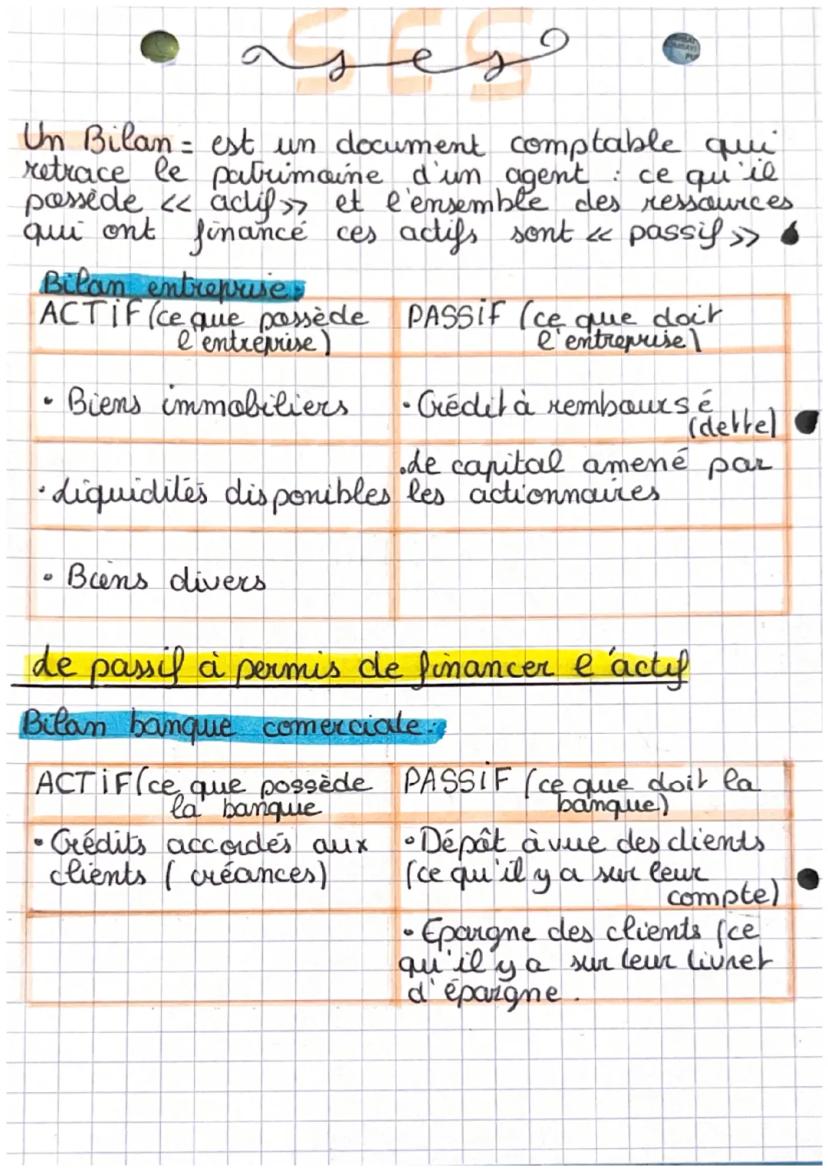 SES
ses
Un Bilan = est un document comptable qui
retrace le patrimoine d'un agent : ce qu'il
possède << actif >> et l'ensemble des ressources
qui ont financé ces actifs sont << passif >>
Bilan entreprise :
ACTIF (ce que possède
l'entreprise)
PASSIF (ce que doit
l'entreprise)
• Biens immobiliers
• Crédit à remboursé
(dette)
• Liquidités disponibles
• Le capital amené par
les actionnaires
• Biens divers
Le passif à permis de financer l'actif
Bilan banque comerciale :
ACTIF (ce que possède
la banque
PASSIF (ce que doit la
banque)
• Crédits accordés aux
clients ( créances)
• Dépôt à vue des clients
(ce qu'il y a sur leur
compte)
• Epargne des clients (ce
qu'il y a sur leur livret
d'épargne.